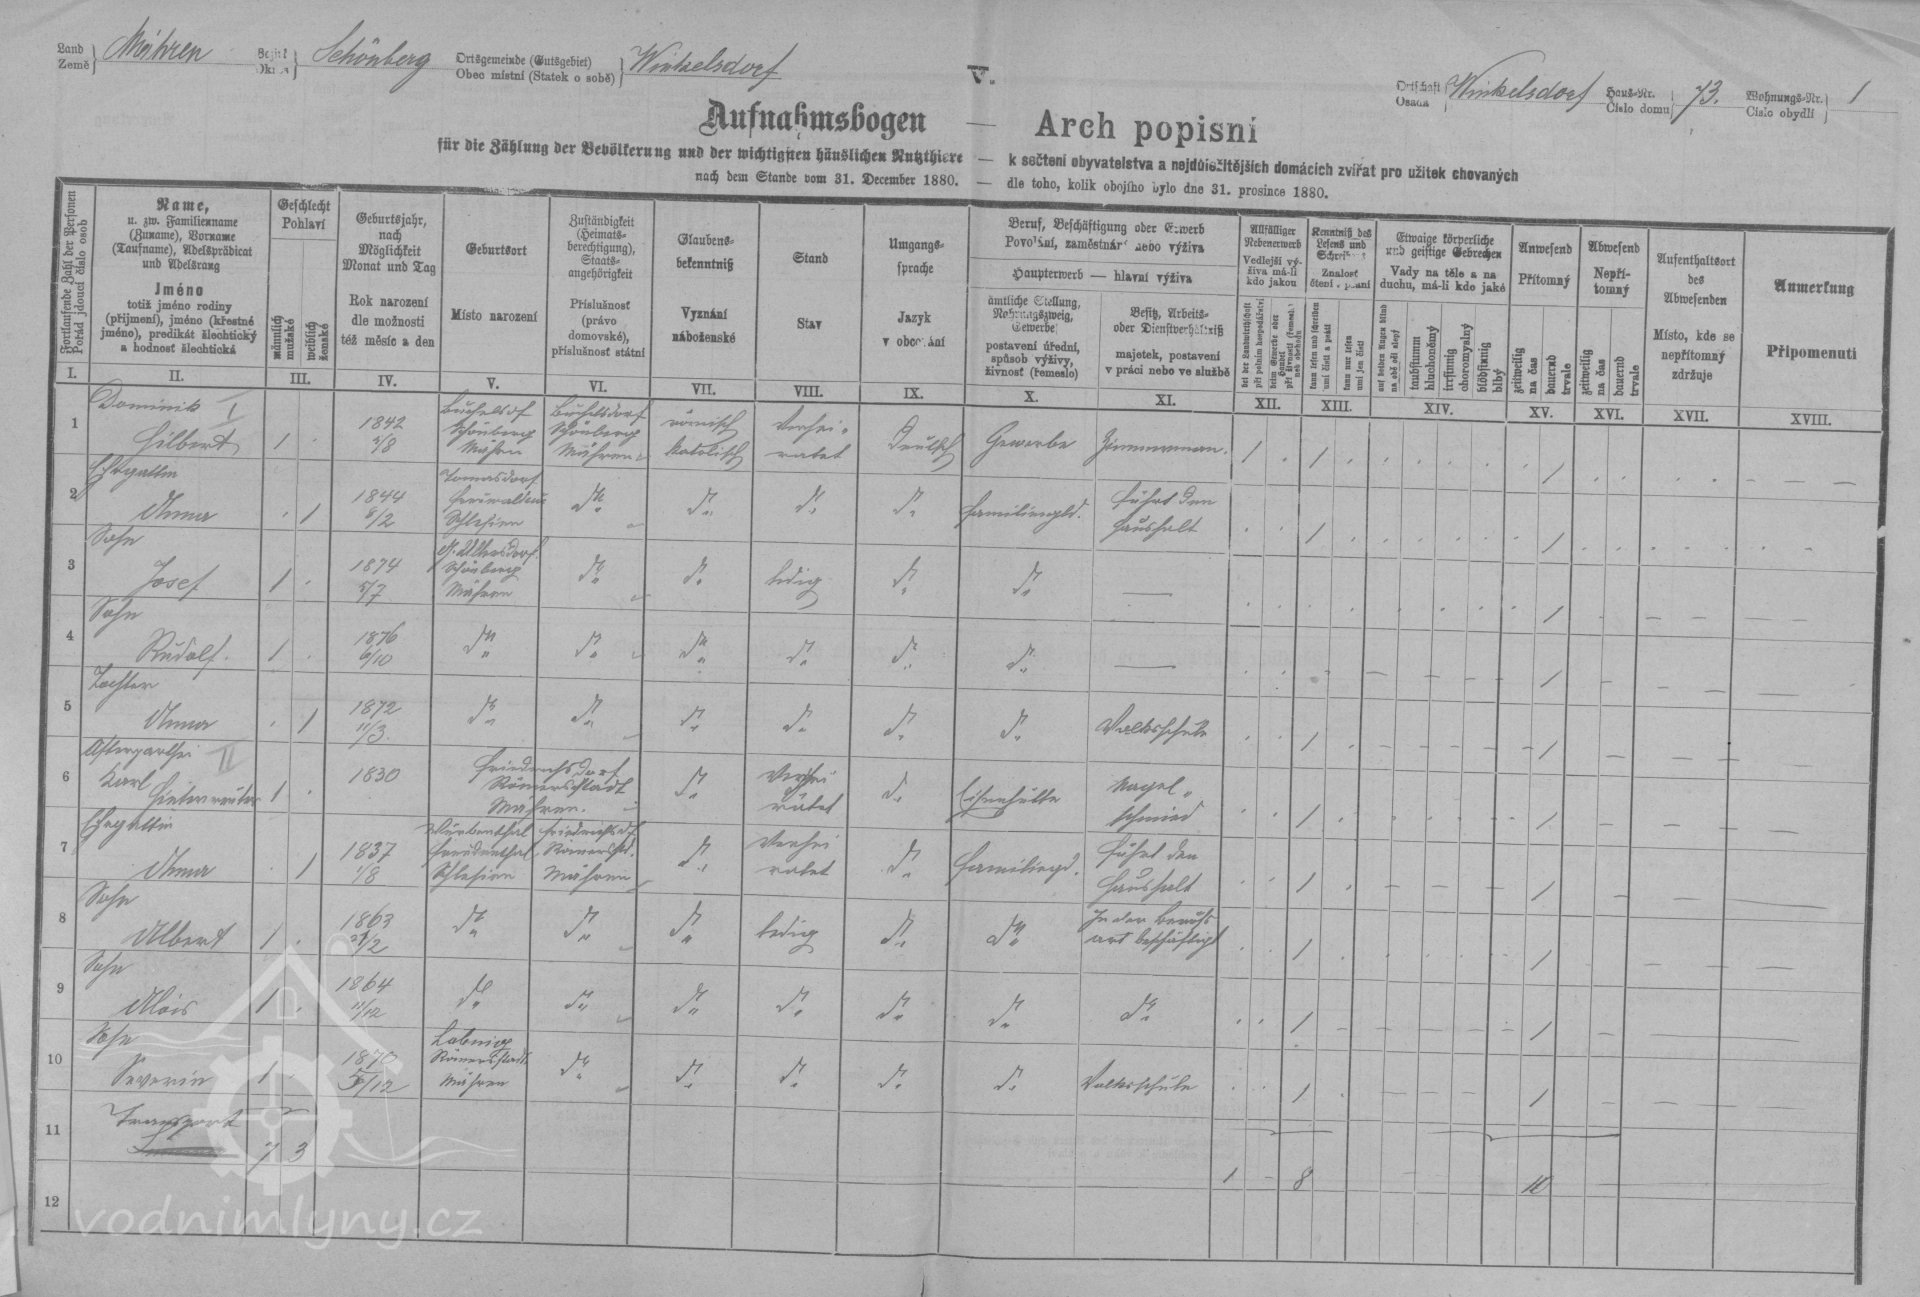 Land
Země
Mähren
Okres
Schönberg
Ortsgemeinde (Gutsgebiet)
Obec místní (Statek o sobě)
Winkelsdorf
V.
Ortschaft
Osada
Winkelsdorf
Haus-Nr.
Číslo domu
73.
Wohnungs-Nr.
Číslo obydlí
1
Aufnahmsbogen — Arch popisní
für die Zählung der Bevölkerung und der wichtigsten häuslichen Nutzthiere — k sečtení obyvatelstva a nejdůležitějších domácích zvířat pro užitek chovaných
nach dem Stande vom 31. December 1880. — dle toho, kolik obojího bylo dne 31. prosince 1880.
Fortlaufende Zahl der Personen
Pořád jdoucí číslo osob
Name,
u. zw. Familienname
(Zuname), Vorname
(Taufname), Adelsprädicat
und Adelsrang
Jméno
totiž jméno rodiny
(příjmení), jméno (křestné
jméno), predikát šlechtický
a hodnost šlechtická
Geschlecht
Pohlaví
männlich
mužské
weiblich
ženské
Geburtsjahr,
nach
Möglichkeit
Monat und Tag
Rok narození
dle možnosti
též měsíc a den
Geburtsort
Místo narození
Zuständigkeit
(Heimats-
berechtigung),
Staats-
angehörigkeit
Příslušnosť
(právo
domovské),
příslušnosť státní
Glaubens-
bekenntniß
Vyznání
náboženské
Stand
Stav
Umgangs-
sprache
Jazyk
v obcování
Beruf, Beschäftigung oder Erwerb
Povolání, zaměstnání nebo výživa
Haupterwerb — hlavní výživa
ämtliche Stellung,
Nahrungszweig,
Gewerbe
postavení úřední,
spůsob výživy,
živnosť (řemeslo)
Besitz, Arbeits-
oder Dienstverhältniß
majetek, postavení
v práci nebo ve službě
Allfälliger
Nebenerwerb
Vedlejší vý-
živa má-li
kdo jakou
bei der Landwirthschaft
při polním hospodářství
Kenntniß des
Lesens und
Schreibens
Znalosť
čtení a psaní
kann lesen und schreiben
umí čísti a psáti
kann nur lesen
umí jen čísti
Etwaige körperliche
und geistige Gebrechen
Vady na těle a na
duchu, má-li kdo jaké
auf beiden Augen blind
na obě oči slepý
taubstumm
hluchoněmý
irrsinnig
choromyslný
blödsinnig
blbý
Anwesend
Přítomný
zeitweilig
na čas
dauernd
trvale
Abwesend
Nepří-
tomný
zeitweilig
na čas
dauernd
trvale
Aufenthaltsort
des
Abwesenden
Místo, kde se
nepřítomný
zdržuje
Anmerkung
Připomenutí
I. II. III. IV. V. VI. VII. VIII. IX. X. XI. XII. XIII. XIV. XV. XVI. XVII. XVIII.
1 Dominik I
Hilbert 1 1842
2/8
Schönberg
Mähren
Schönberg
Mähren
römisch
katolisch
Verhei-
ratet
Deutsch Gewerbe Zimmerman. 1 1 1
2 Ehegattin
Anna 1 1844
8/2
Tomasdorf
Freiwaldau
Schlesien
dto d. d. d. Familiengld. führt den
Haushalt
1 1
3 Sohn
Josef 1 1874
5/7
Schönberg
Mähren
dto d. ledig d. d. — 1
4 Sohn
Rudolf. 1 1876
6/10
d. d. d. d. d. d. — 1
5 Tochter
Anna 1 1872
11/3.
d. d. d. d. d. d. Volksschule 1 1
6 Afterparthei II
Karl 1 1830
Friedrichsdorf
Römerstadt
Mähren.
d. Verhei
ratet
d. Eisenhütte Nagel-
schmied
1 1
7 Ehegattin
Anna 1 1837
1/8
Würbenthal
Freudenthal
Schlesien
Friedrichsdf.
Römerstd.
Mähren
d. Verhei
ratet
d. Familiengd. führt den
Haushalt
1 1
8 Sohn
Albert 1 1863
d. d. d. ledig d. d. In der Berufs
art beschäftigt
1 1
9 Sohn
Alois 1 1864
11/12
d. d. d. d. d. d. d. 1 1
10 Sohn
Severin 1 1870
Römerstadt
Mähren
d. d. d. d. d. Volksschule 1 1
11 Transport
7 3
1 - 8 10
12
vodnimlyny.cz